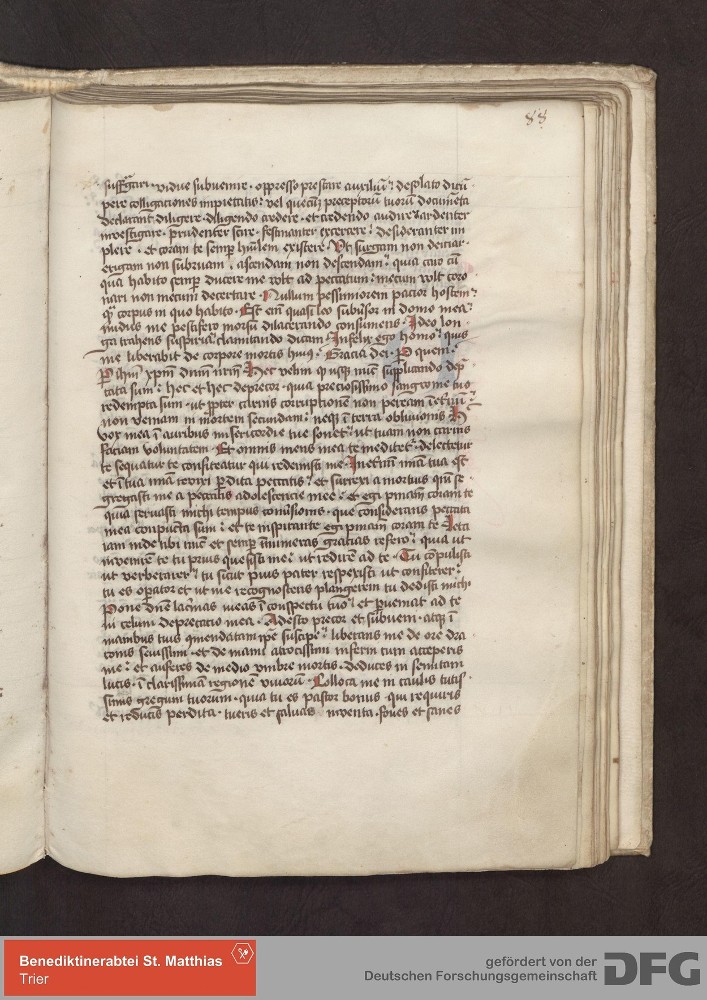 88
suffragari · vidue subvenire · oppresso prestare auxiliū : desolato dirū
pere colligationes impietatis : vel quecūqʒ preceptorū tuorū documēta
declarant diligere · diligendo credere · et credendo audire ardenter
investigare · prudenter scire · festinanter exercere : desideranter im
plere · et coram te semp hūilem existere · Ut surgam non deiciar
erigam non subruam · ascendam non descendam : quia caro cū
qua habito semp ducere me volt ad peccatum : mecum volt coro
nari non mecum decertare · Nullum pessimiorem pacior hostem :
qʒ corpus in quo habito · Est eīm quasi leo subūsor in domo mea :
nudus me pestifero morsu dilacerando consumens · Ideo lon
ga trahens suspiria : clamitando dicam · Infelix ego homo : quis
me liberabit de corpore mortis huiꝰ · Gracia dei · P quem :
P ihm xpm dnm nrm · Hec velim qʒ usqʒ nūc supplicando dep
cata sum : hec et hec deprecor · quia preciosissimo sanguine tuo
redempta sum · ut ppter carnis corruptionē non peream ī etnū :
non veniam in mortem secundam : neqʒ ī terra oblivionis ·
Vox mea ī auribus misericordie tue sonet : ut tuam non carnis
faciam voluntatem · Et omnis mens mea te meditet : delectetur
te sequatur te confiteatur qui redemisti me · In etnū mīa tua est
et ī tua mīa revixi pdita peccatis : et surrexi a mortuis qm se
gregasti me a peccatis adolescencie mee : et egi pniam coram te
quia servasti michi tempus cōmissionis · que considerans peccata
mea conpuncta sum : et te inspirante egi pniam coram te · Leta
iam inde tibi nūc et semp īnumeras gracias refero : quia ut
invenirē te tu prius quesisti me : ut redirē ad te · Tu cōpulisti
ut verberarer : tu sicut pius pater respexisti ut confiterer :
tu es opator et ut me recognoscens plangerem tu dedisti mich
Pone dnē lacrimas meas ī conspectu tuo : et pveniat ad te
in celum deprecatio mea · Adesto precor et subveni · atqʒ ī
manibus tuis cōmendatam ipe suscipe : liberans me de ore dra
conis sevissimi · et de manu atrocissimi inferni eum acceperis
me : et auferes de medio umbre mortis · deduces in semitam
lucis · ī clarissimā regionē vivorū · Colloca me in caulis tutis
simis gregum tuorum · quia tu es pastor bonus · qui requiris
et reducis perdita · tueris et salvas inventa · foves et sanes
Benediktinerabtei St. Matthias
Trier
gefördert von der
Deutschen Forschungsgemeinschaft
DFG